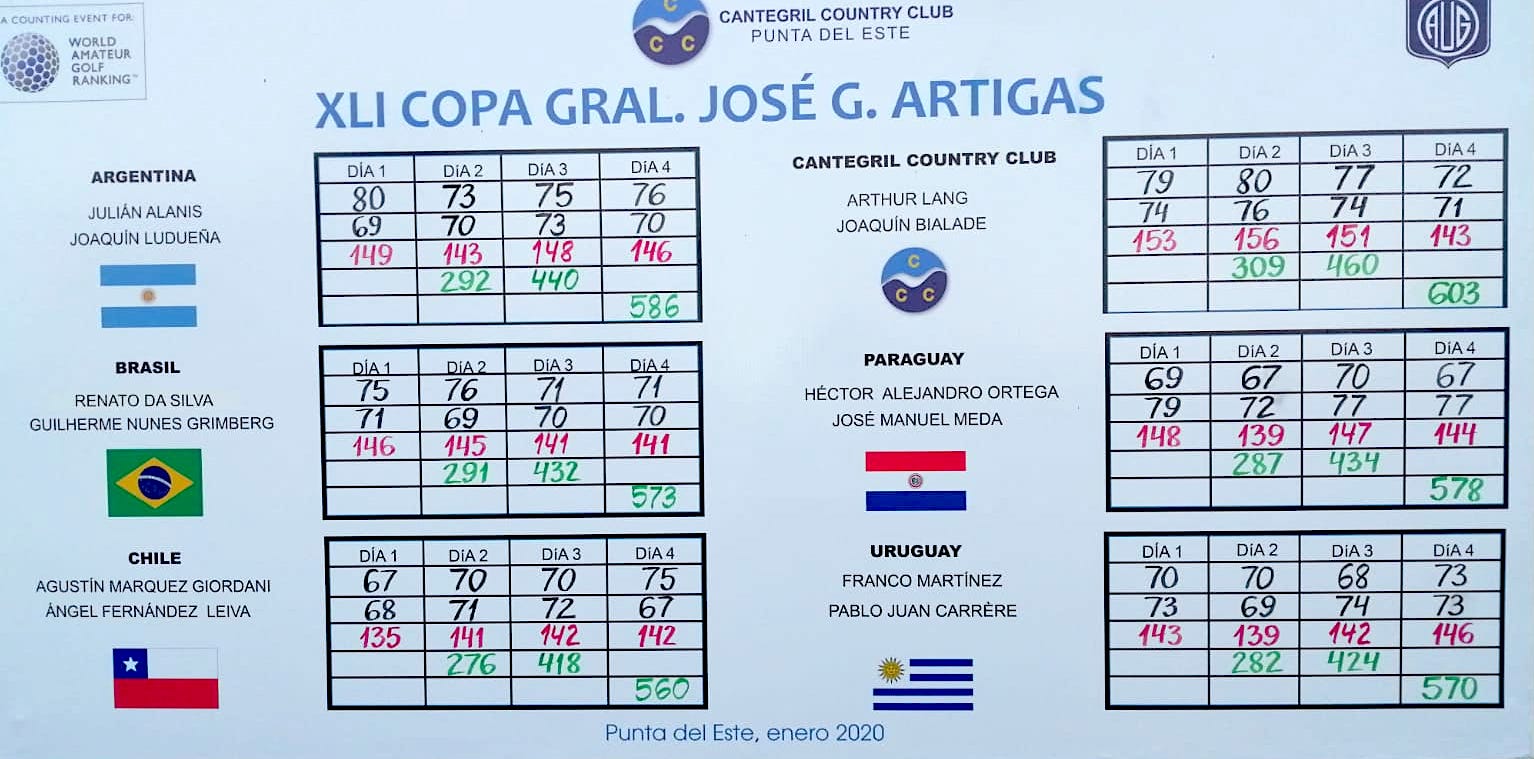 A COUNTING EVENT FOR:
WORLD
AMATEUR
GOLF
RANKING™
C
C C
CANTEGRIL COUNTRY CLUB
PUNTA DEL ESTE
AUG
XLI COPA GRAL. JOSÉ G. ARTIGAS
ARGENTINA
JULIÁN ALANIS
JOAQUÍN LUDUEÑA
DÍA 1 DíA 2 DíA 3 DíA 4
80 73 75 76
69 70 73 70
149 143 148 146
292 440
586
BRASIL
RENATO DA SILVA
GUILHERME NUNES GRIMBERG
DÍA 1 DíA 2 DíA 3 DíA 4
75 76 71 71
71 69 70 70
146 145 141 141
291 432
573
CHILE
AGUSTÍN MARQUEZ GIORDANI
ÁNGEL FERNÁNDEZ LEIVA
DÍA 1 DíA 2 DíA 3 DíA 4
67 70 70 75
68 71 72 67
135 141 142 142
276 418
560
CANTEGRIL COUNTRY CLUB
ARTHUR LANG
JOAQUÍN BIALADE
C
C C
DÍA 1 DíA 2 DíA 3 DíA 4
79 80 77 72
74 76 74 71
153 156 151 143
309 460
603
PARAGUAY
HÉCTOR ALEJANDRO ORTEGA
JOSÉ MANUEL MEDA
DÍA 1 DíA 2 DíA 3 DíA 4
69 67 70 67
79 72 77 77
148 139 147 144
287 434
578
URUGUAY
FRANCO MARTÍNEZ
PABLO JUAN CARRÈRE
DÍA 1 DíA 2 DíA 3 DíA 4
70 70 68 73
73 69 74 73
143 139 142 146
282 424
570
Punta del Este, enero 2020